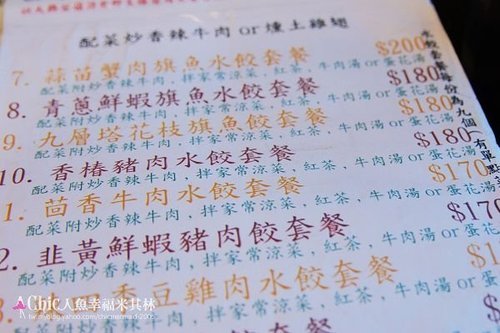 配菜炒香辣牛肉or燻土雞翅
7. 蒜苗蟹肉旗魚水餃套餐 $200
配菜附炒香辣牛肉，拌家常涼菜，紅茶，牛肉湯or蛋花湯
8. 青蔥鮮蝦旗魚水餃套餐 $180
配菜附炒香辣牛肉，拌家常涼菜，紅茶，牛肉湯or蛋花湯
9. 九層塔花枝旗魚水餃套餐 $180
配菜附炒香辣牛肉，拌家常涼菜，紅茶，牛肉湯or蛋花湯
10. 香椿豬肉水餃套餐 $180
配菜附炒香辣牛肉，拌家常涼菜，紅茶，牛肉湯or蛋花湯
1. 茴香牛肉水餃套餐 $170
配菜附炒香辣牛肉，拌家常涼菜，紅茶，牛肉湯or蛋花湯
2. 韭黃鮮蝦豬肉餃套餐 $170
配菜附炒香辣牛肉，拌家常涼菜，紅茶，牛肉湯or蛋花湯
香豆雞肉水餃套餐 $1
配菜附炒香辣牛肉，拌家常涼菜，紅茶，牛肉湯or
水餃套餐每份為九個（有單點
Chic人魚幸福米其林